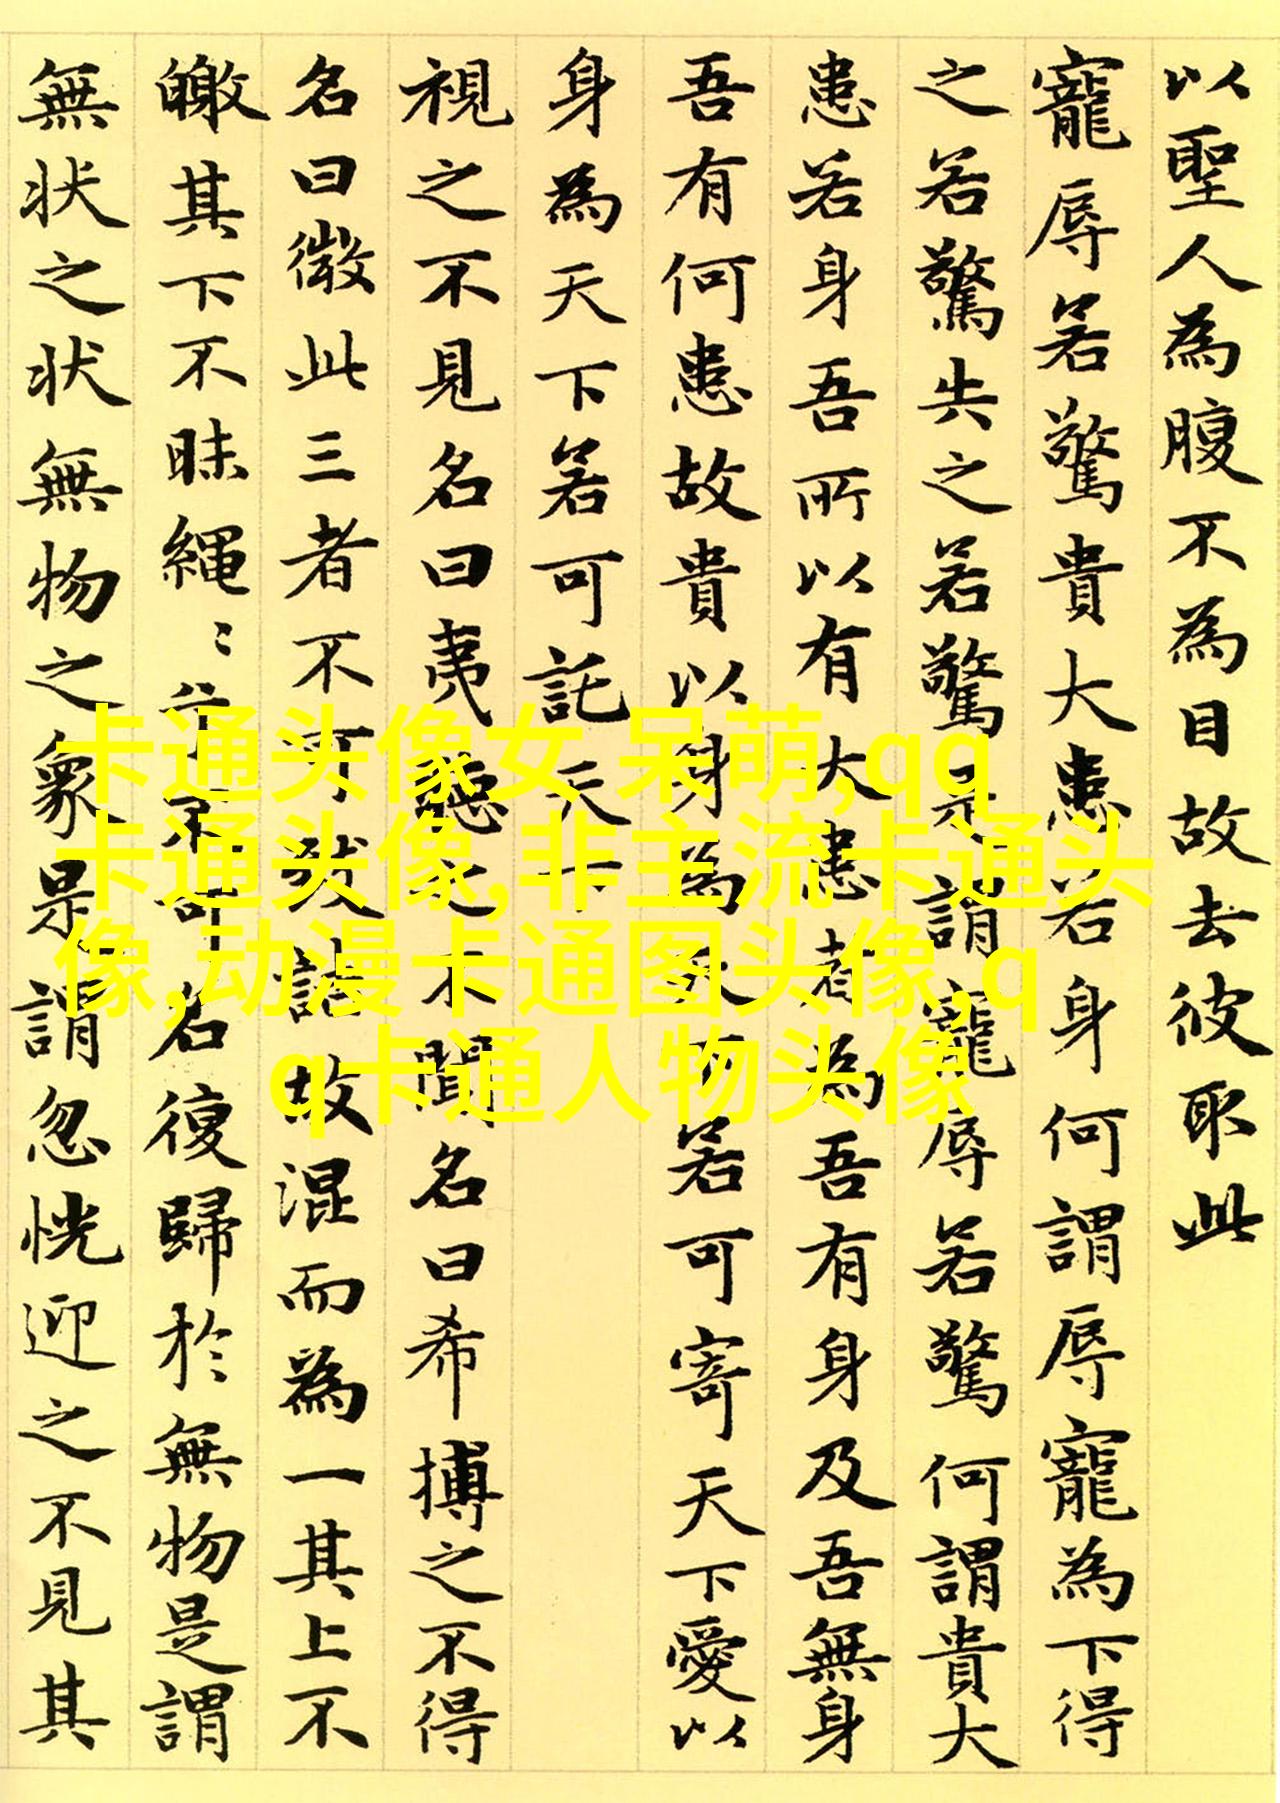 以聖人為腹不為目故去彼取此
寵辱若驚貴大患若身何謂辱寵為下得
之若驚失之若驚是謂寵辱若驚何謂貴大
患若身吾所以有大患者為吾有身及吾無身
吾有何患故貴以身為天下若可寄天下愛以
身為天下若可託天下
視之不見名曰夷聽之不聞名曰希搏之不得
名曰微此三者不可致詰故混而為一其上不
皦其下不昧繩〻兮不可名復歸於無物是謂
無状之状無物之象是謂忽恍迎之不見其
卡通头像女 呆萌,qq
卡通头像,非主流卡通头
像,动漫卡通图头像,q
q卡通人物头像